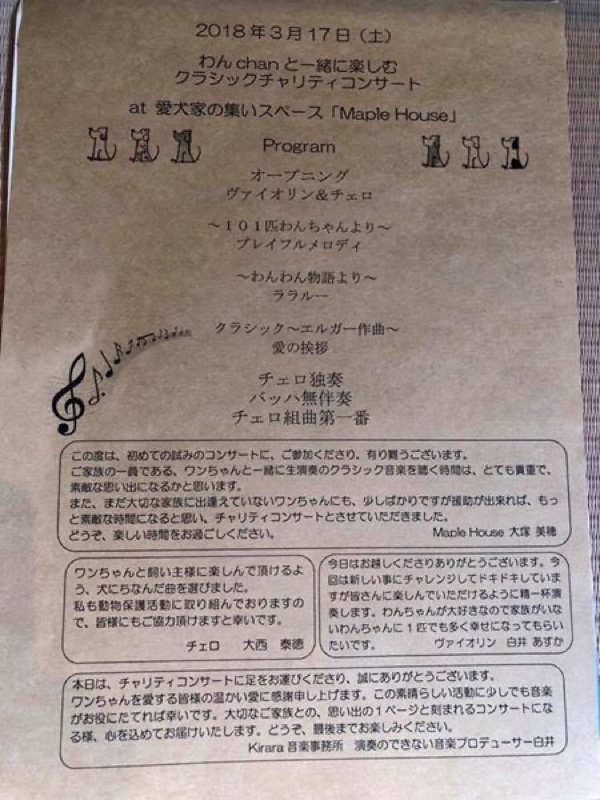 2018年3月17日（土）
わんchanと一緒に楽しむ
クラシックチャリティコンサート
at 愛犬家の集いスペース「Maple House」
Program
オープニング
ヴァイオリン＆チェロ
～１０１匹わんちゃんより～
プレイフルメロディ
～わんわん物語より～
ララルー
クラシック～エルガー作曲～
愛の挨拶
チェロ独奏
バッハ無伴奏
チェロ組曲第一番
この度は、初めての試みのコンサートに、ご参加くださり、有り難うございます。
ご家族の一員である、ワンちゃんと一緒に生演奏のクラシック音楽を聴く時間は、とても貴重で、
素敵な思い出になるかと思います。
また、まだ大切な家族に出逢えていないワンちゃんにも、少しばかりですが援助が出来れば、もっ
と素敵な時間になると思い、チャリティコンサートとさせていただきました。
どうぞ、楽しい時間をお過ごしください。
Maple House 大塚 美穂
ワンちゃんと飼い主様に楽しんで頂けるよ
う、犬にちなんだ曲を選びました。
私も動物保護活動に取り組んでおりますの
で、皆様にもご協力頂けますと幸いです。
チェロ 大西 泰徳
今日はお越しくださりありがとうございます。今
回は新しい事にチャレンジしてドキドキしていま
すが皆さんに楽しんでいただけるように精一杯演
奏します。わんちゃんが大好きなので家族がいな
いわんちゃんに１匹でも多く幸せになってもらい
たいです。 ヴァイオリン 白井 あすか
本日は、チャリティコンサートに足をお運びくださり、誠にありがとうございます。
ワンちゃんを愛する皆様の温かい愛に感謝申し上げます。この素晴らしい活動に少しでも音楽
がお役にたてれば幸いです。大切なご家族との、思い出の１ページと刻まれるコンサートにな
る様、心を込めてお届けいたします。どうぞ、最後までお楽しみください。
Kirara 音楽事務所 演奏のできない音楽プロデューサー白井